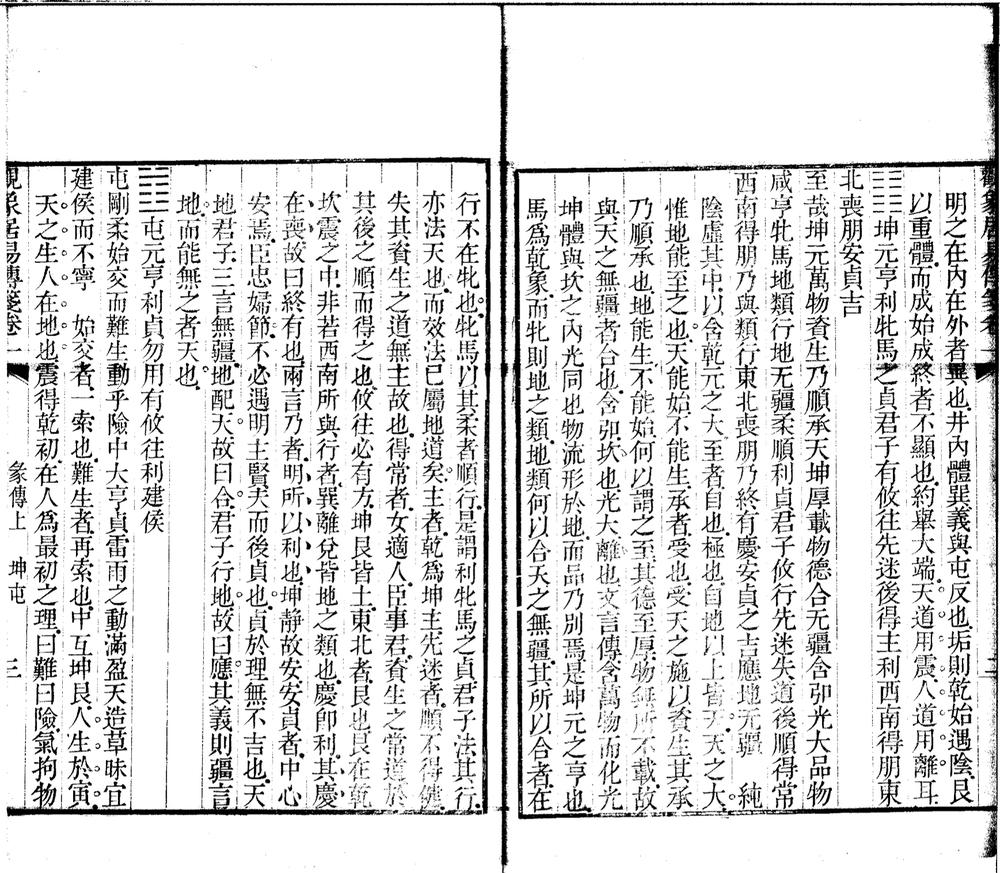 明之在內在外者異也井內體巽義與屯反也垢則乾始遇陰艮
以重體而成始成終者不顯也約舉大端天道用震人道用離耳
坤元亨利牝馬之貞君子有攸往先迷後得主利西南得朋東
北喪朋安貞吉
至哉坤元萬物資生乃順承天坤厚載物德合无疆含弘光大品物
咸亨牝馬地類行地无疆柔順利貞君子攸行先迷失道後順得常
西南得朋乃與類行東北喪朋乃終有慶安貞之吉應地无疆 純
陰虛其中以含乾元之大至者自也極也自地以上皆天天之大
惟地能至之也天能始不能生承者受也受天之施以資生其承
乃順承也地能生不能始何以謂之至其德至厚物無所不載故
與天之無疆者合也含弘坎也光大離也文言傳含萬物而化光
坤體與坎之內光同也物流形於地而品乃別焉是坤元之亨也
馬爲乾象而牝則地之類地類何以合天之無疆其所以合者在
行不在牝也牝馬以其柔者順行是謂利牝馬之貞君子法其行
亦法天也而效法已屬地道矣主者乾爲坤主先迷者順不得健
失其資生之道無主故也得常者女適人臣事君資生之常道於
其後之順而得之也攸往必有方坤艮皆土東北者艮也艮在乾
坎震之中非若西南所與行者巽離兌皆地之類也慶卽利其慶
在喪故曰終有也兩言乃者明所以利也坤靜故安安貞者中心
安焉臣忠婦節不必遇明主賢夫而後貞也貞於理無不吉也天
地君子三言無疆地配天故曰合君子行地故曰應其義則疆言
地而能無之者天也
屯元亨利貞勿用有攸往利建侯
屯剛柔始交而難生動乎險中大亨貞雷雨之動滿盈天造草昧宜
建侯而不寧 始交者一索也難生者再索也中互坤艮人生於寅
天之生人在地也震得乾初在人爲最初之理曰難曰險氣拘物
觀象居易傳箋卷一
彖傳上 坤屯 三